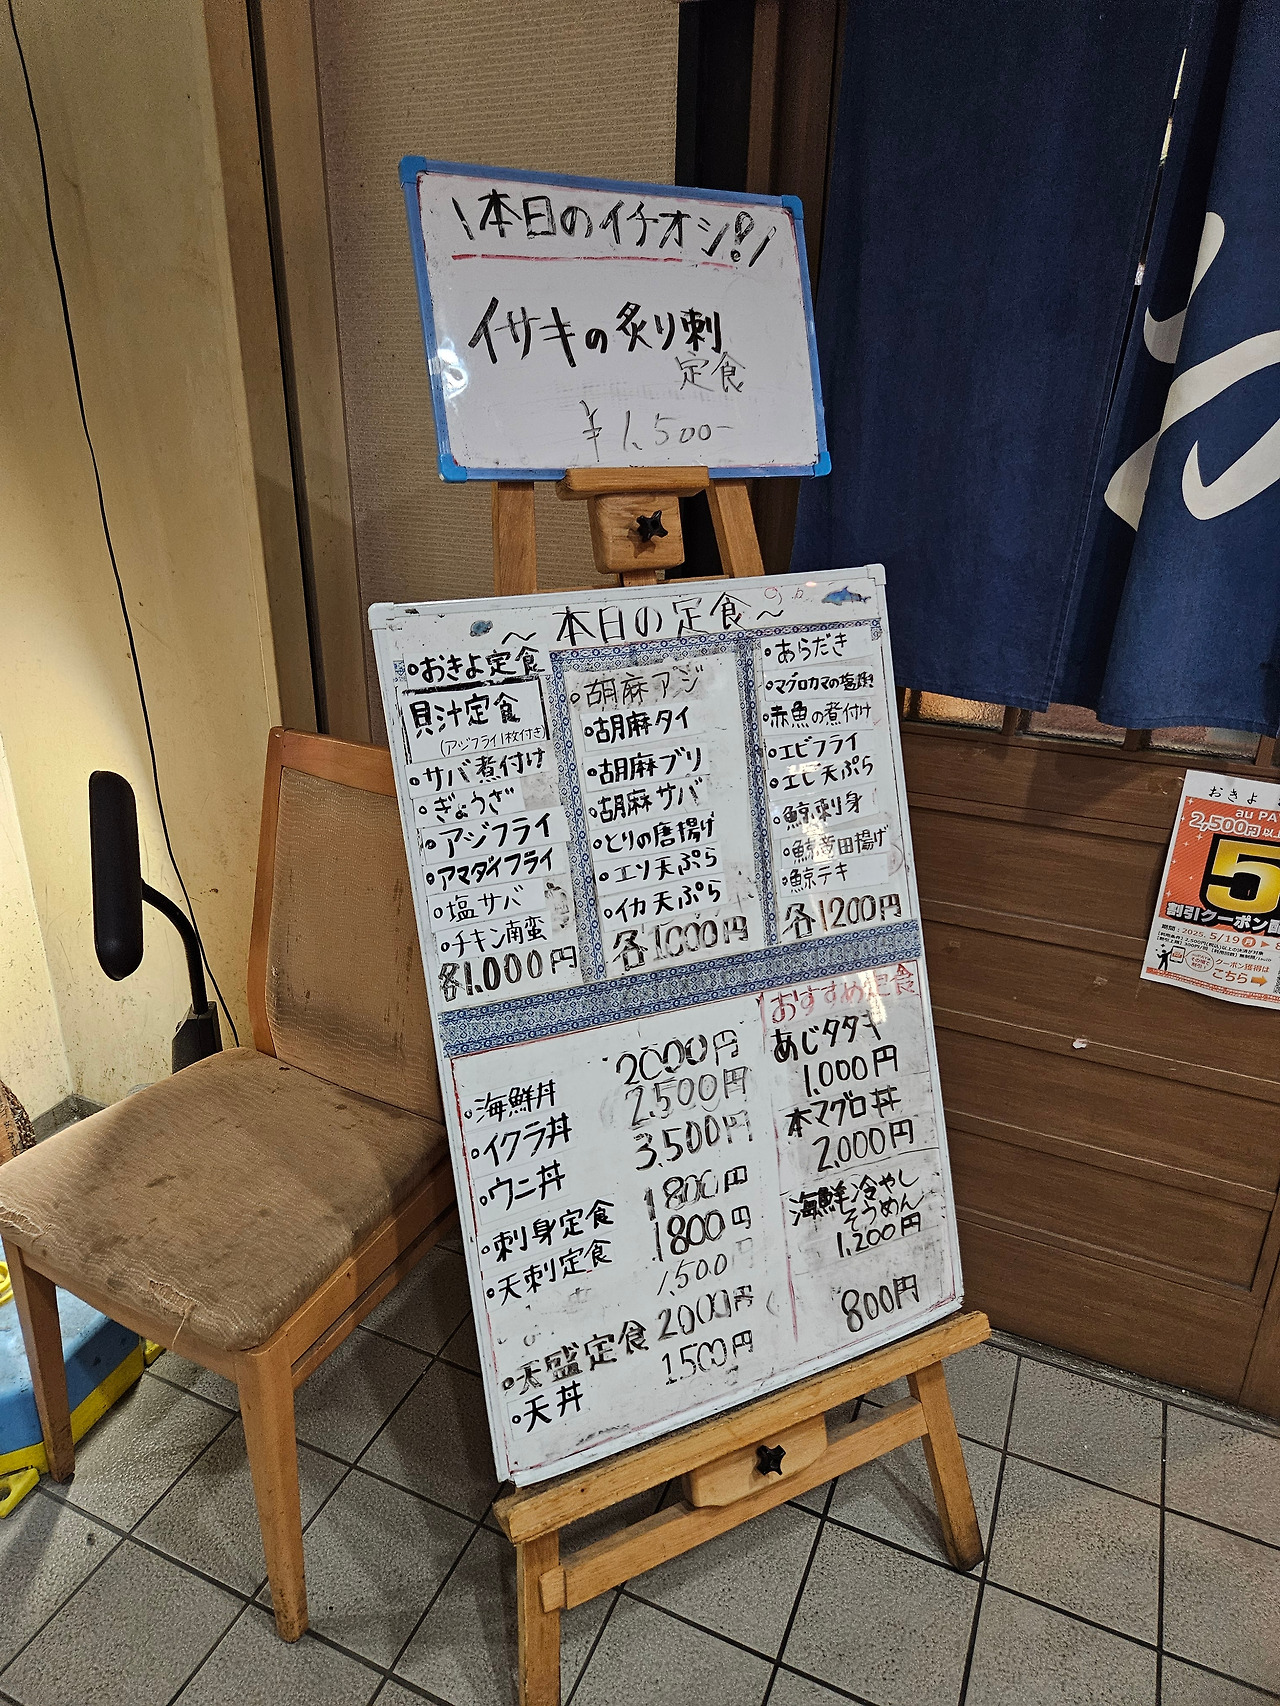 \本日のイチオシ!/
イサキの炙り刺
定食
¥1,500-
~本日の定食~
おきよ定食
貝汁定食
(アジフライ1枚付き)
サバ煮付け
ぎょうざ
アジフライ
アマダイフライ
塩サバ
チキン南蛮
各1,000円
胡麻アジ
胡麻タイ
胡麻ブリ
胡麻サバ
とりの唐揚げ
エソ天ぷら
イカ天ぷら
各1000円
あらだき
マグロカマの塩焼
赤魚の煮付け
エビフライ
エビ天ぷら
鯨刺身
鯨竜田揚げ
鯨テキ
各1200円
海鮮丼 2000円
イクラ丼 2,500円
ウニ丼 3,500円
刺身定食 1800円
天刺定食 1800円
1,500
天盛定食 2000円
天丼 1500円
おすすめ定食
あじタタキ
1,000円
本マグロ丼
2,000円
海鮮冷やし
そうめん
1,200円
800円
おきよ
au PA
2,500円以
5
割引クーポン
期間:2025.5/19
クーポン獲得は
こちら